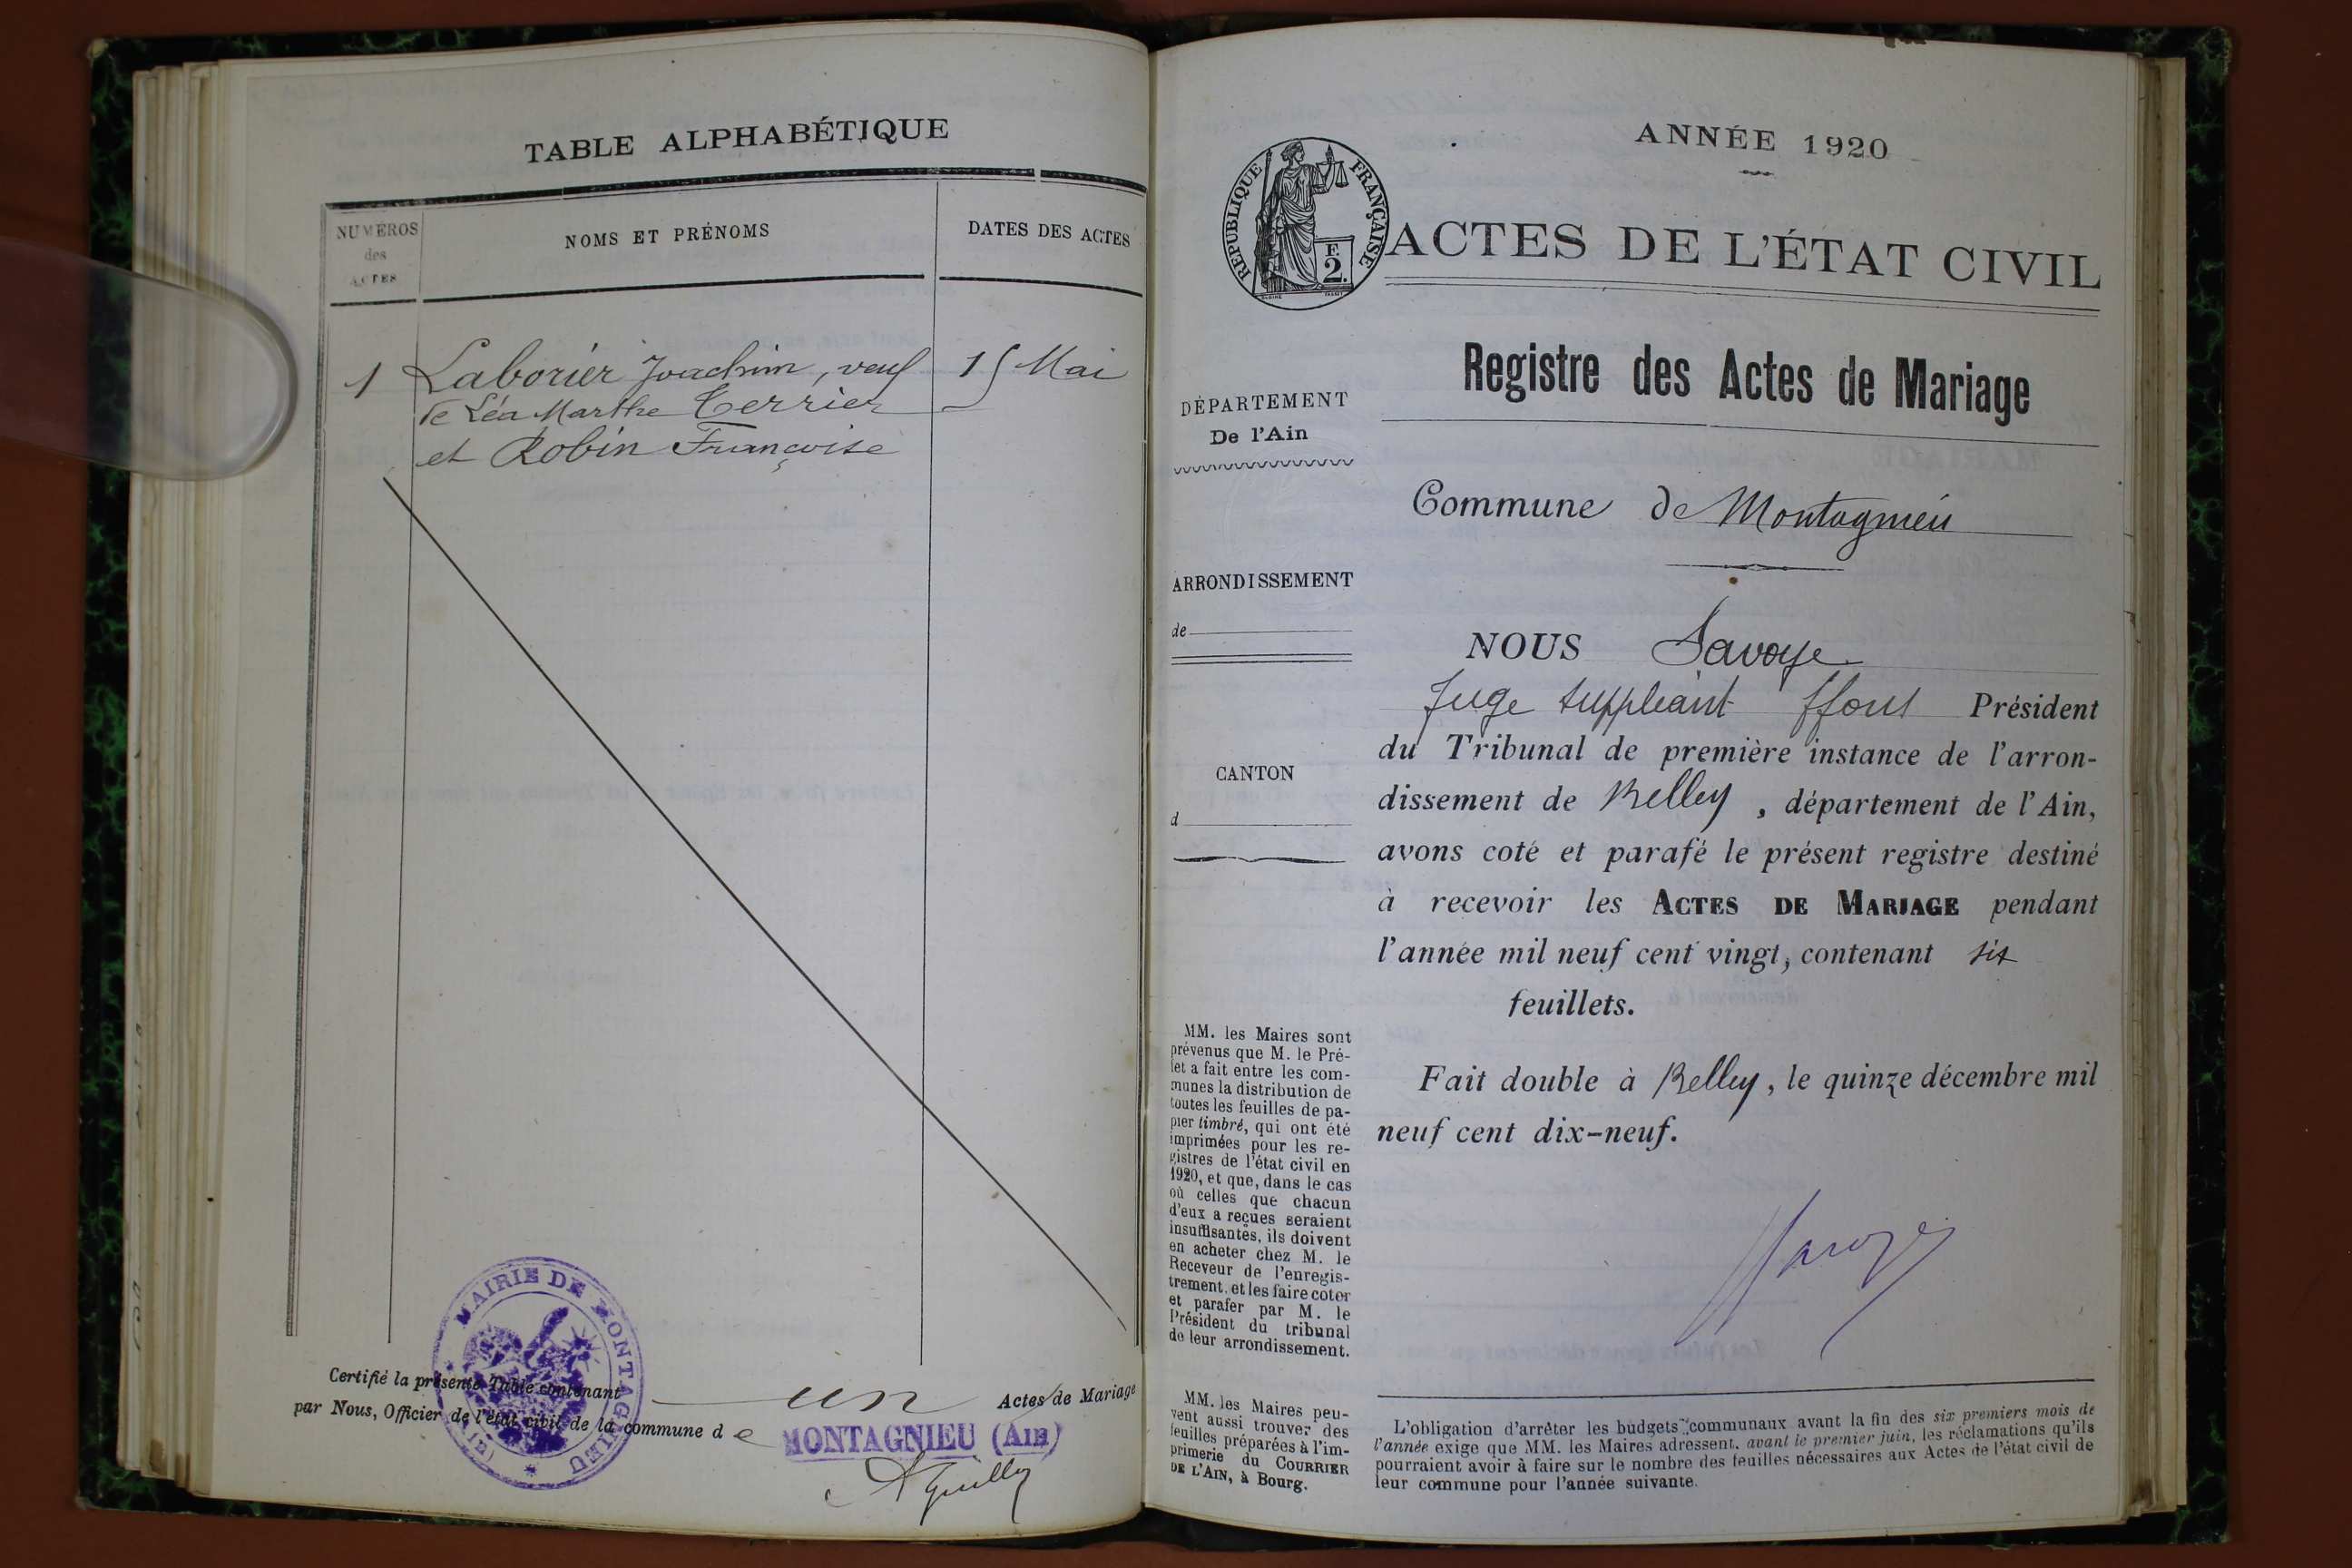 TABLE ALPHABÉTIQUE
NUMÉROS
des
ACTES
NOMS ET PRÉNOMS
DATES DES ACTES
1 Laborier Joachim, veuf 15 Mai
de Léa Marthe Terrier
et Robin Françoise
MAIRIE DE MONTAGNIEU
(Ain)
Certifié la présente Table contenant un Actes de Mariage
par Nous, Officier de l'état civil de la commune de MONTAGNIEU (AIN)
ANNÉE 1920
RÉPUBLIQUE FRANÇAISE
F.
2.
ACTES DE L'ÉTAT CIVIL
Registre des Actes de Mariage
DÉPARTEMENT
De l'Ain
Commune de Montagnieu
ARRONDISSEMENT
de
CANTON
d
NOUS Savoye
Juge suppléant ffons Président
du Tribunal de première instance de l'arron-
dissement de Belley, département de l'Ain,
avons coté et parafé le présent registre destiné
à recevoir les ACTES DE MARIAGE pendant
l'année mil neuf cent vingt, contenant six
feuillets.
Fait double à Belley, le quinze décembre mil
neuf cent dix-neuf.
Savoye
MM. les Maires sont
prévenus que M. le Pré-
fet a fait entre les com-
munes la distribution de
toutes les feuilles de pa-
pier timbré, qui ont été
imprimées pour les re-
gistres de l'état civil en
1920, et que, dans le cas
où celles que chacun
d'eux a reçues seraient
insuffisantes, ils doivent
en acheter chez M. le
Receveur de l'enregis-
trement, et les faire coter
et parafer par M. le
Président du tribunal
de leur arrondissement.
MM. les Maires peu-
vent aussi trouver des
feuilles préparées à l'im-
primerie du COURRIER
DE L'AIN, à Bourg.
L'obligation d'arrêter les budgets communaux avant la fin des six premiers mois de
l'année exige que MM. les Maires adressent, avant le premier juin, les réclamations qu'ils
pourraient avoir à faire sur le nombre des feuilles nécessaires aux Actes de l'état civil de
leur commune pour l'année suivante.